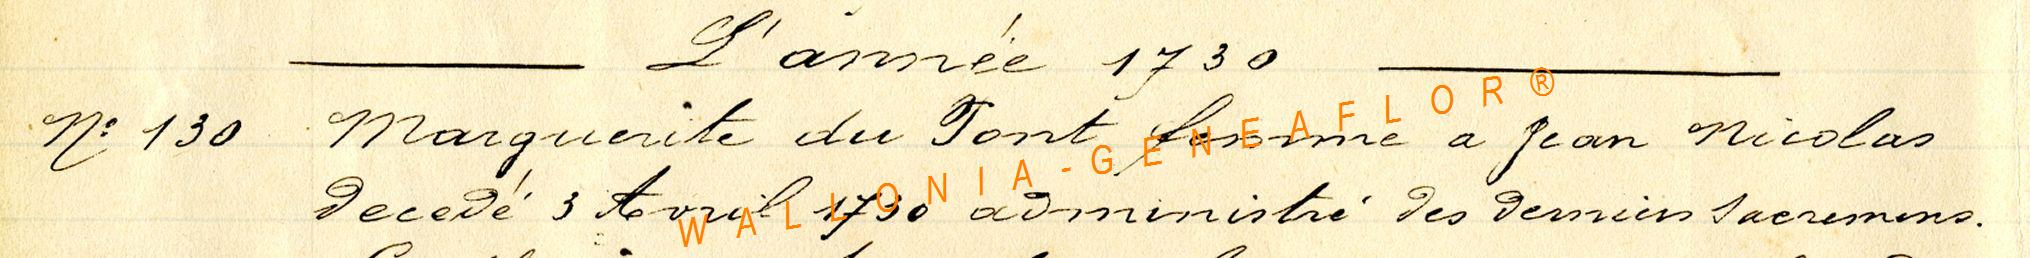 L'année 1730
N° 130 Marguerite du Pont femme a Jean Nicolas
decedé 3 Avril 1730 administré des derniers Sacremens.
WALLONIA-GENEAFLOR®